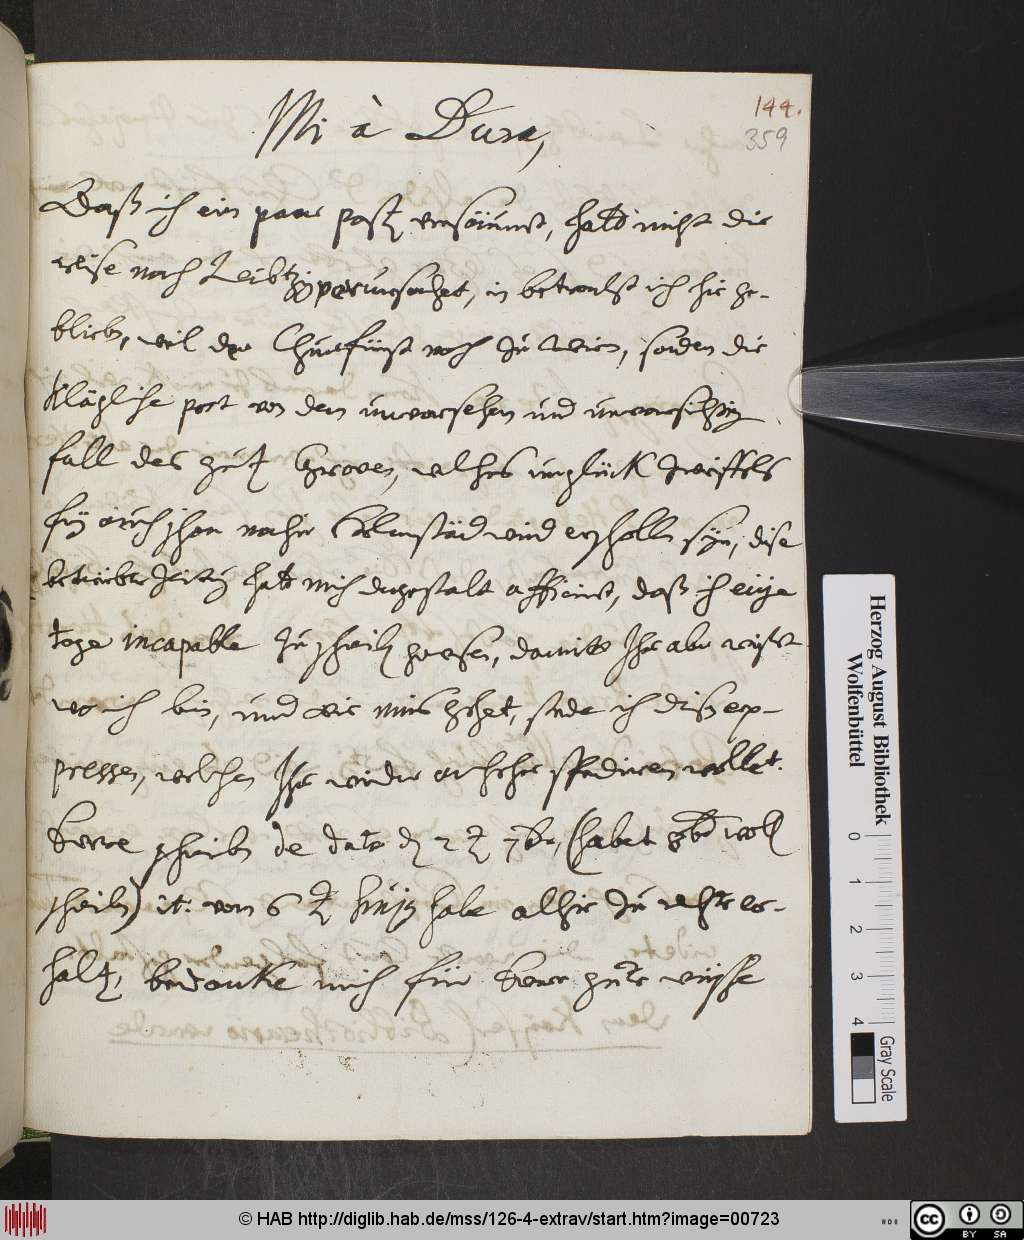 144.
359
Mi à Dura,
Daß ich ein paar post versäumt, hatt nicht die
reise nach Leibtzig verursachet, in betracht ich hie ge-
blieben, weil der Churfürst noch zu Wien, sonden die
klägliche post von dem unvorsehen und unvorsichtig
fall des gutten, welches unglück zweiffels
frey auch schon nacher Helmstäd wird erschollen seyn, dise
betrübte Zeitung hatt mich dergestalt afficirt, daß ich einige
tage incapable zu schreiben gewesen, damitt Ihr aber wisset
wo ich bin, und wie mirs gehet, sende ich disen ex-
pressen, welchen Ihr wieder anhero spediren wollet.
Ewere schreiben de dato 7br, (habet 8br wollen
schreiben) it: vom 6 habe alhie zu recht er-
halten, bedancke mich für Ewere gute wünsche
Herzog August Bibliothek
Wolfenbüttel
0 1 2 3 4
Gray Scale
© HAB http://diglib.hab.de/mss/126-4-extrav/start.htm?image=00723
cc BY SA